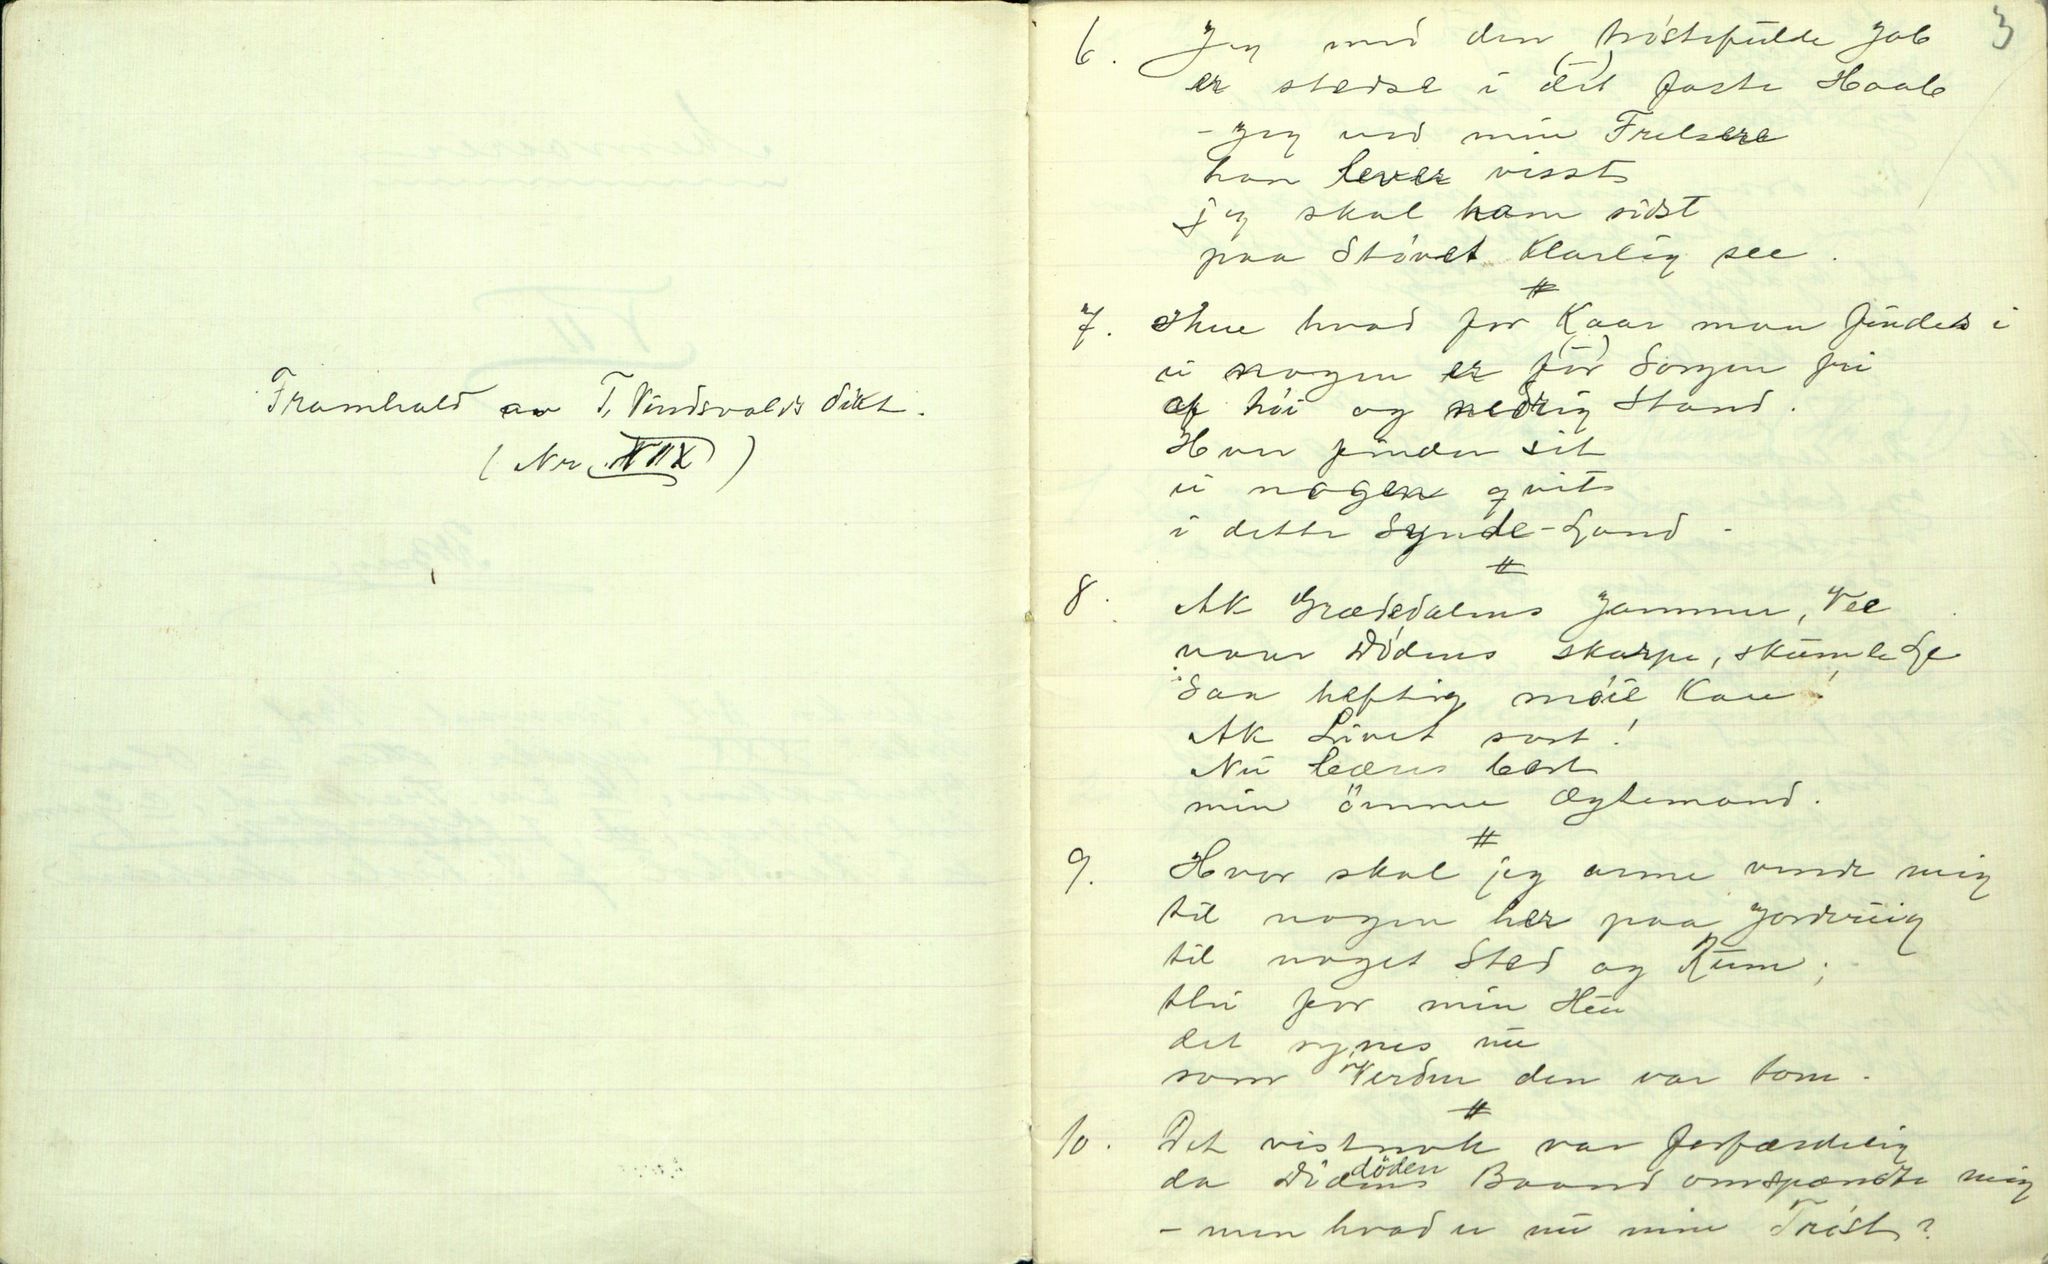 Framhald av T. Vindsvalds dikt.
(Nr. XIIX)
3
6. Jeg med den trøstefulde Job
er stedse i det faste Haab
- Jeg ved min Frelsere
han lever visst
jeg skal ham sidst
paa Støvet klarlig see.
#
7. Skue hvad for Kaar man finder i
ei nogen er for Sorgen fri
af høi og nedrig Stand.
Hver finder sit
ei nogen qvit
i dette Synde-Land -
#
8. Ak Grædedalens Jammer, Vee
naar Dødens skarpe, skumle Le
Saa heftig møie kan!
Ak Livet sart!
Nu bæres bort
min ömme Ægtemand.
#
9. Hvor skal jeg arme vende mig
til nogen her paa Jorderiig
til noget Sted og Rum;
thi for min Hu
det synes nu
som Verden den var tom.
#
10. Det vistnok var forfærdelig
döden
da Dødens Baand omspændte mig
- men hvad er nu min Trøst?